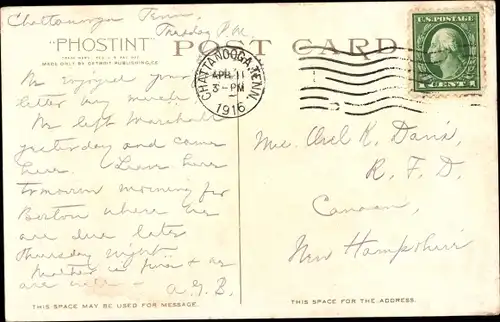 Chattanooga Tenn.
Tuesday P.M.
"PHOSTINT" POST CARD
MADE ONLY BY DETROIT PUBLISHING CO.
CHATTANOOGA, TENN.
APR 11
3-PM
1916
U.S. POSTAGE
1 CENT 1
We enjoyed your
letter very much.
We left Marshall
yesterday and came
here. Leave here
tomorrow morning for
Boston where we
are due late
Thursday night.
Mother is fine & as
are
A.G.B.
Davis,
R. F. D.
Canaan,
New Hampshire
THIS SPACE MAY BE USED FOR MESSAGE.
THIS SPACE IS FOR THE ADDRESS.